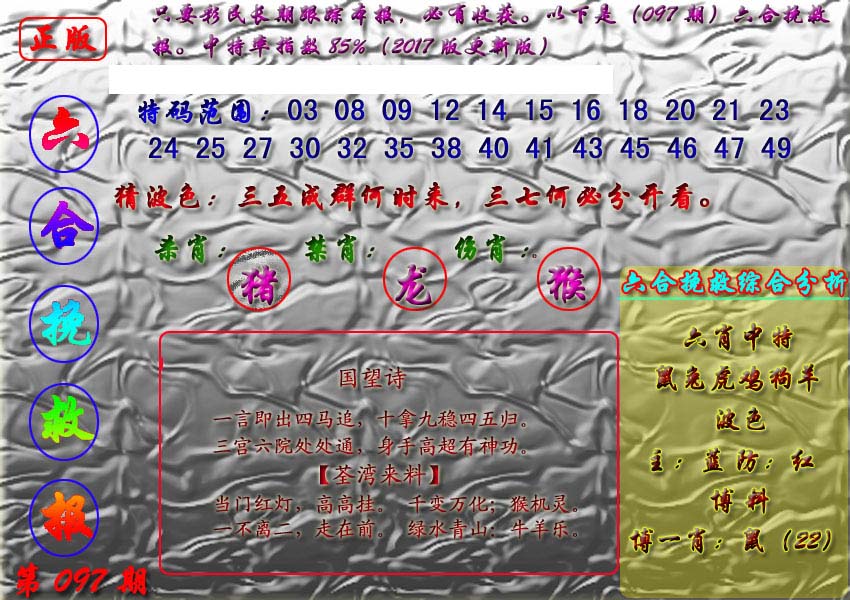 正版
只要彩民长期跟踪本报，必有收获。以下是（097期）六合挽救
报。中特率指数85%（2017版更新版）
特码范围：03 08 09 12 14 15 16 18 20 21 23
24 25 27 30 32 35 38 40 41 43 45 46 47 49
猜波色：三五成群何时来，三七何必分开看。
杀肖：猪 禁肖：龙 伤肖：猴
六合挽救报
第097期
国望诗
一言即出四马追，十拿九稳四五归。
三宫六院处处通，身手高超有神功。
【荃湾来料】
当门红灯，高高挂。 千变万化；猴机灵。
一不离二，走在前。 绿水青山；牛羊乐。
六合挽救综合分析
六肖中特
鼠兔虎鸡狗羊
波色
主：蓝防：红
博料
博一肖：鼠（22）